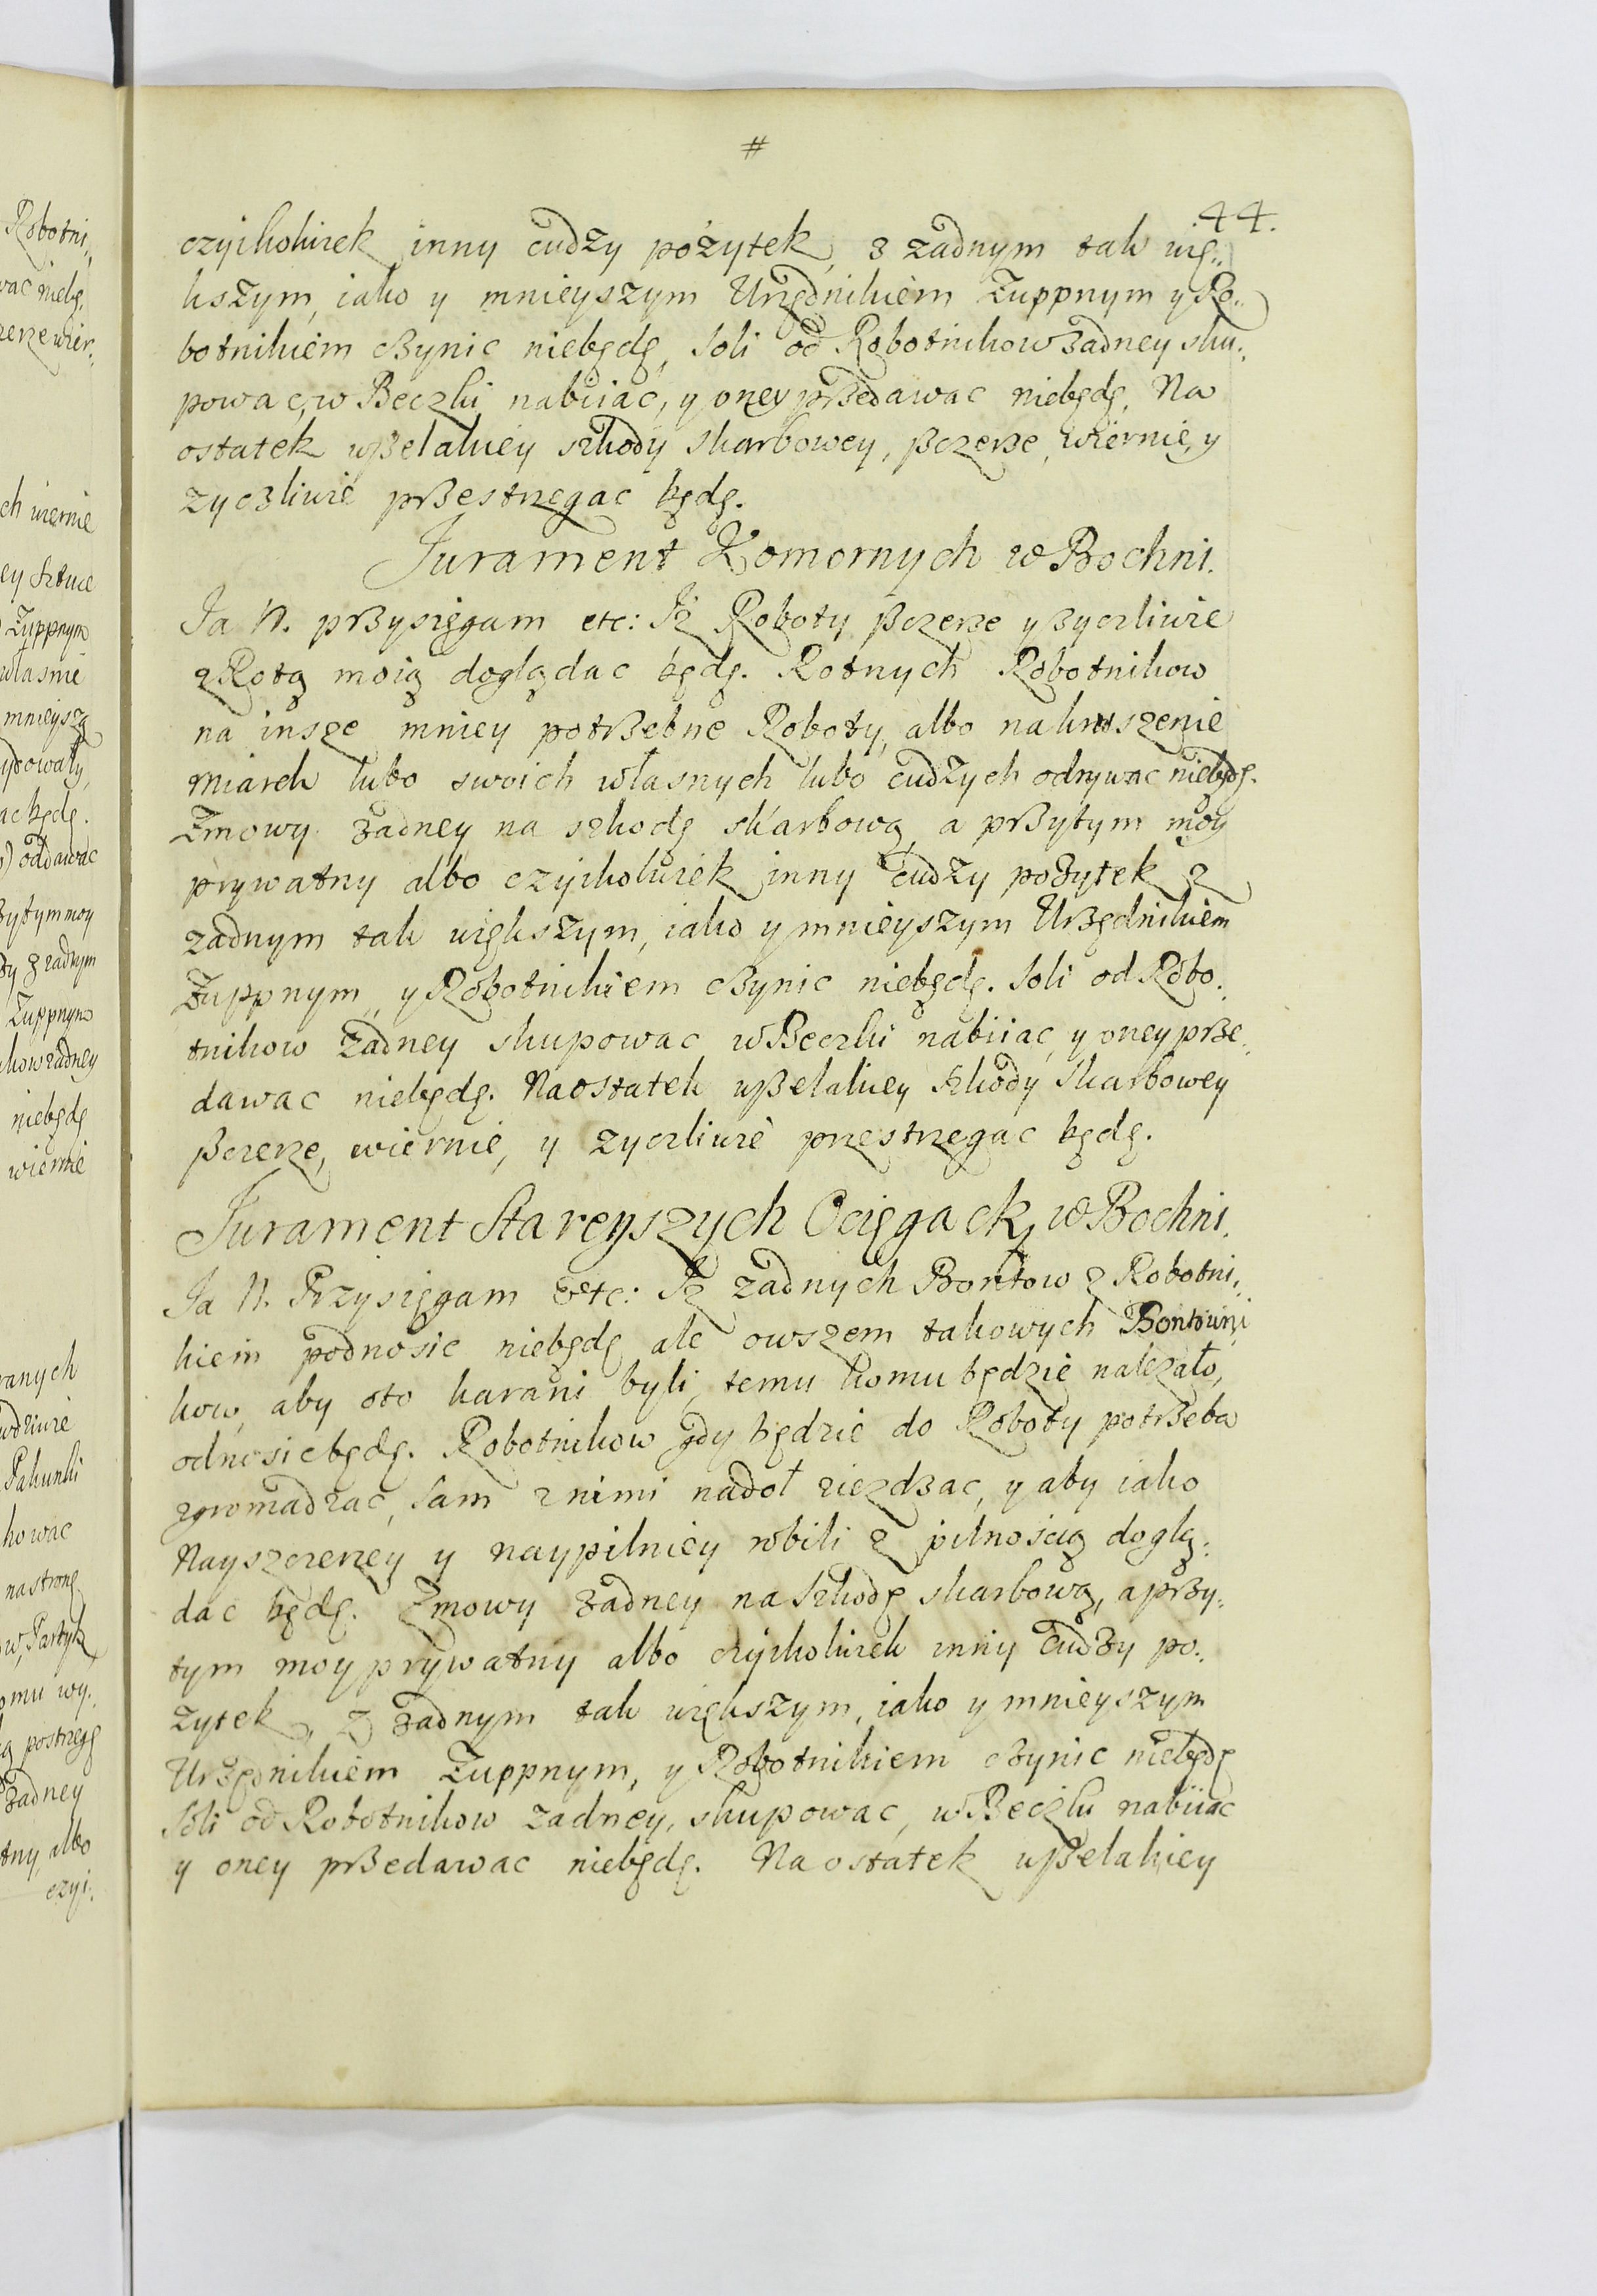 #
44.
czyikolwiek inny cudzy pożytek, z zadnym tak wię„
kszym, iako y mnieyszym Urzędnikiem Zuppnym y Ro„
botnikiem czynic niebędę, Soli od Robotnikow zadney sku„
powac, w Beczki nabiiac, y oney przedawac niebędę. Na
ostatek wszelakiey szkody skarbowey, szczerze, wiernie, y
zyczliwie przestrzegac będę.
Jurament Komornych w Bochni.
Ja N. przysięgam etc: Iz Roboty szczerze y zyczliwie
z Rotą moią doglądac będę. Rotnych Robotnikow
na insze mniey potrzebne Roboty, albo na kruszenie
miarek lubo swoich własnych lubo cudzych odrywac niebędę.
Zmowy zadney na szkodę skarbową, a przytym moy
prywatny albo czyikolwiek inny cudzy pozytek z
zadnym tak większym, iako y mnieyszym Urzędnikiem
Zuppnym, y Robotnikiem czynic niebędę. Soli od Robo„
tnikow zadney skupowac w Beczki nabiiac, y oney prze„
dawac niebędę. Naostatek wszelakiey szkody skarbowey
szczerze, wiernie, y zyczliwie przestrzegac będę.
Jurament Stareyszych Ocięgack, w Bochni.
Ja N. Przysięgam etc: Iz zadnych Bontow z Robotni„
kiem podnosic niebędę ale owszem takowych Bontowni„
kow, aby oto karani byli, temu komu będzie nalezało,
odnosic będę. Robotnikow gdy będzie do Roboty potrzeba
zgromadzac, Sam z nimi nadoł ziezdzac, y aby iako
Nayszczerzey y naypilniey robili z pilnoscią doglą„
dac będę. Zmowy zadney na Szkodę skarbową, a przy„
tym moy prywatny albo czyikolwiek inny cudzy po„
zytek, z zadnym tak większym, iako y mnieyszym
Urzędnikiem Zuppnym, y Robotnikiem czynic niebędę
Soli od Robotnikow zadney, skupowac, w Beczki nabiiac
y oney przedawac niebędę. Na ostatek wszelakiey